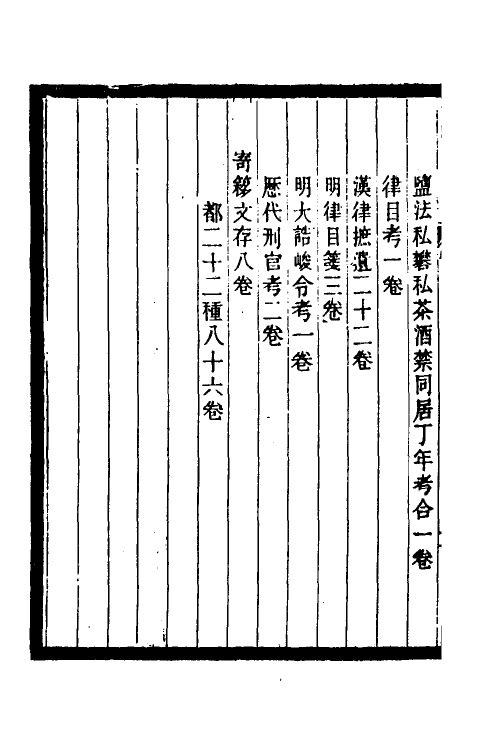 鹽法私礬私茶酒禁同居丁年考合一卷
律目考一卷
漢律摭遺二十二卷
明律目箋三卷
明大誥峻令考一卷
歷代刑官考二卷
寄簃文存八卷
都二十二種八十六卷